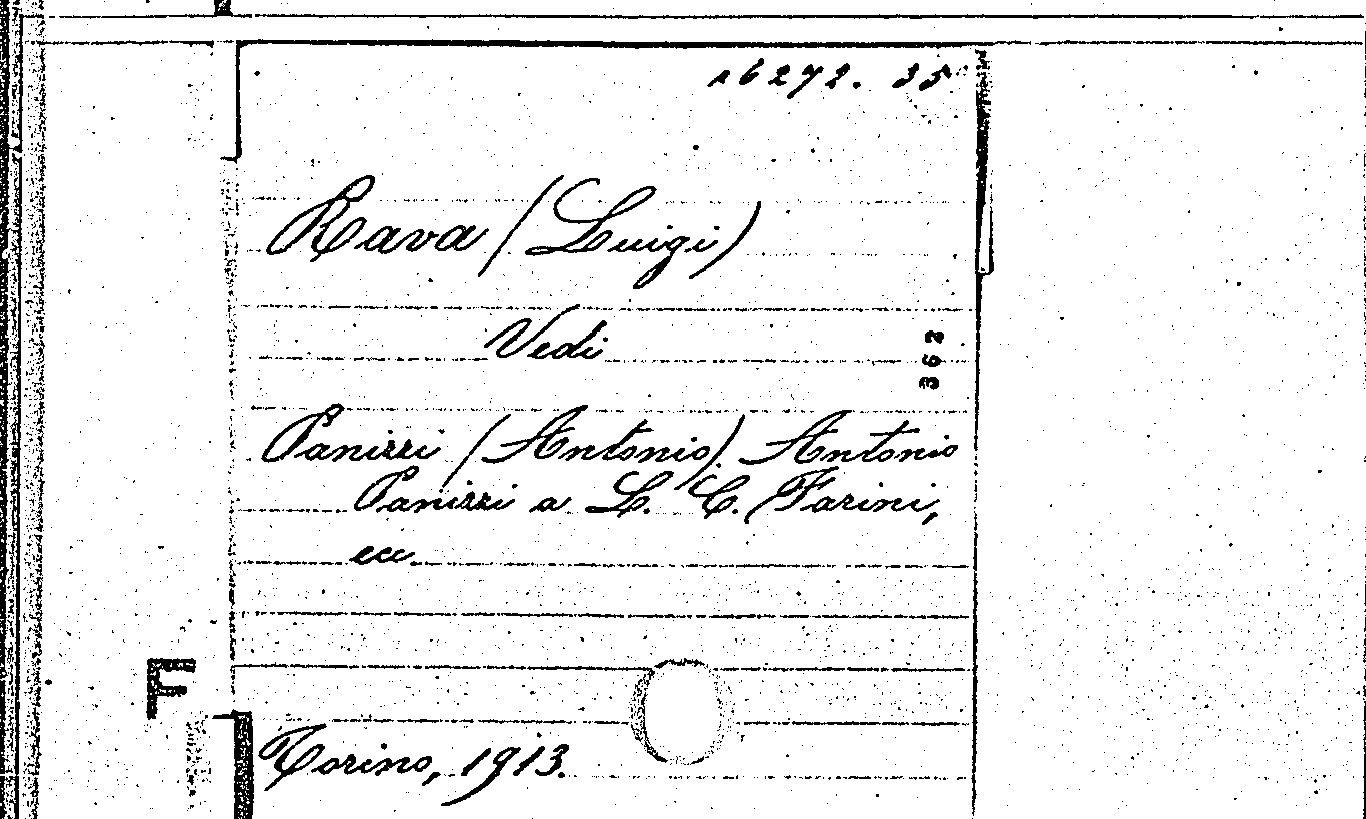 16272. 35
Rava (Luigi)
Vedi
362
Panizzi (Antonio). Antonio
Panizzi a L. C. Farini,
ecc.
F
Torino, 1913.